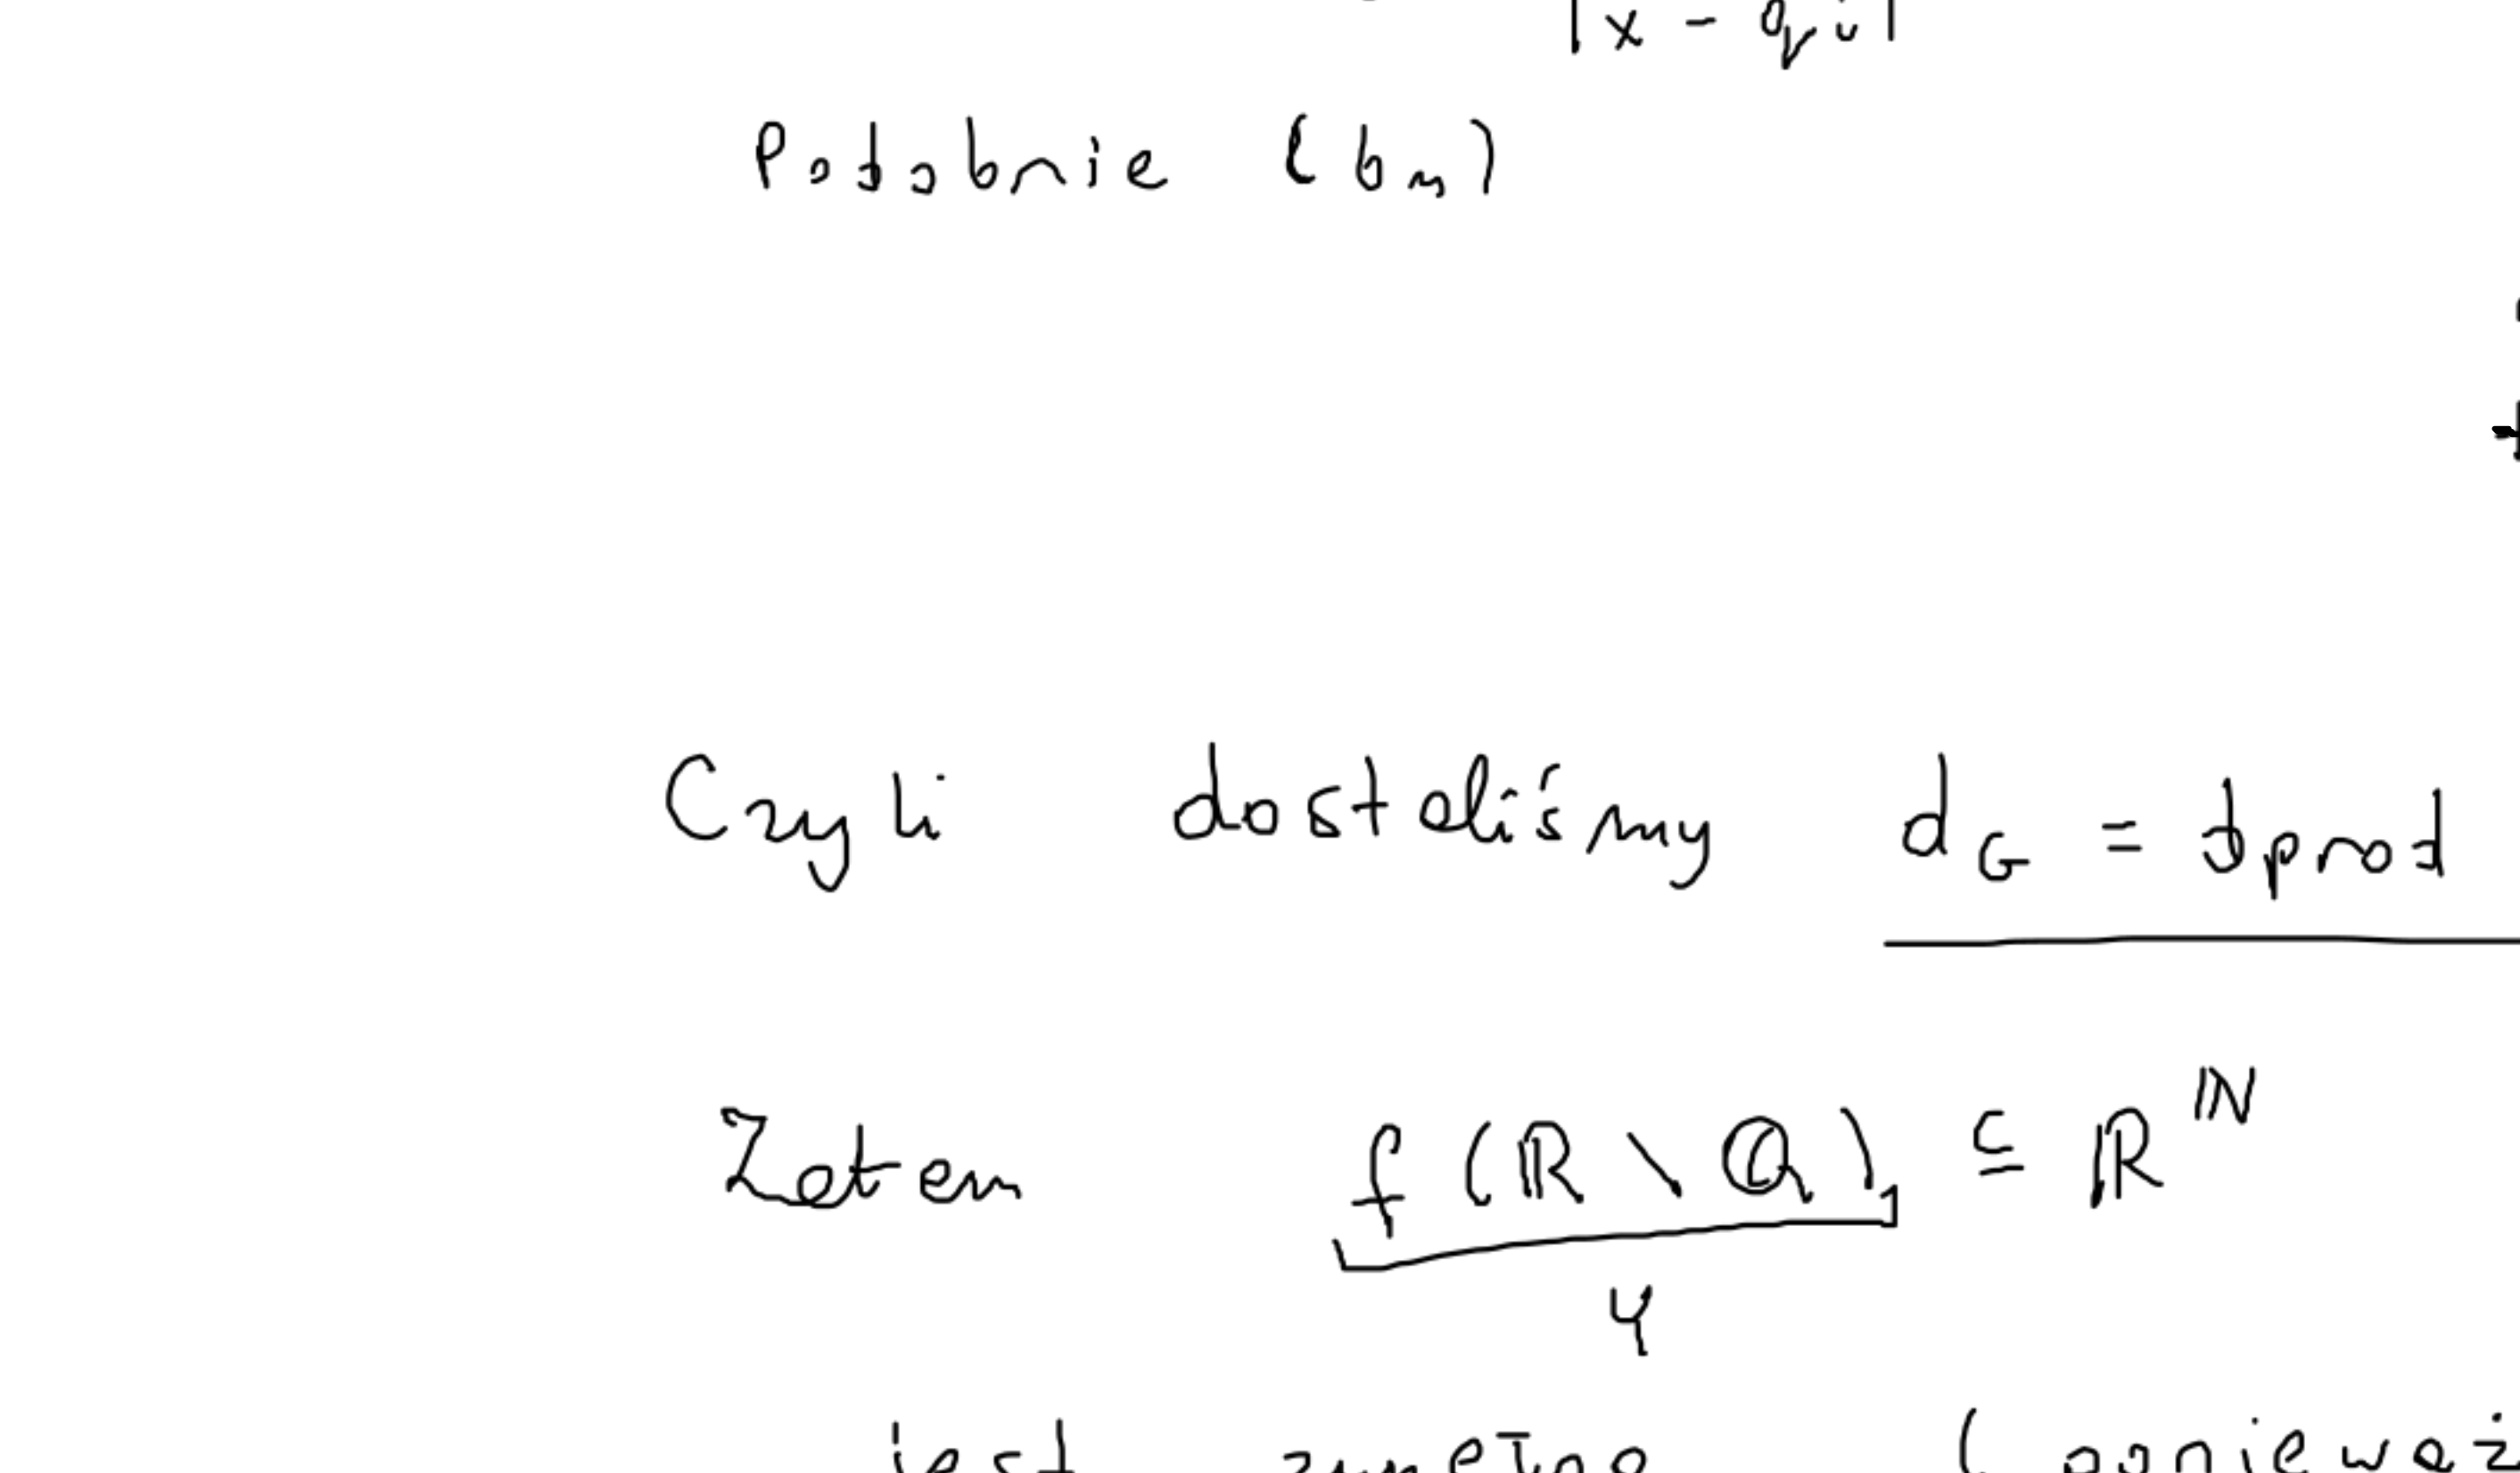 |x - q_i|
Podobnie (b_n)
Czyli dostaliśmy d_G = d_prod
Zatem f(ℝ \ ℚ) ⊆ ℝ^ℕ
Y
jest (ponieważ